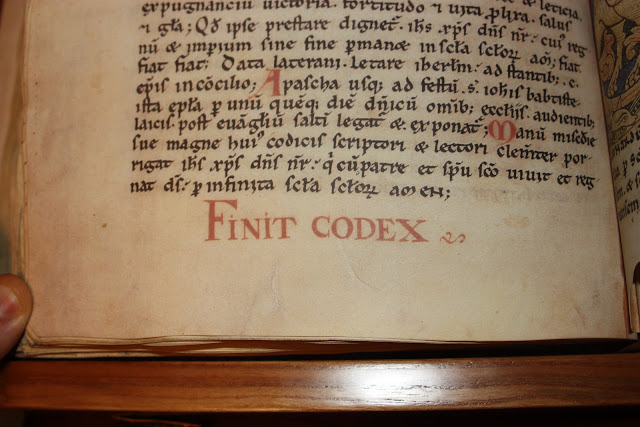 & leticia,
expugnanciū uictoria. fortitudo & uita plixa. salus
& gl̄a; Qd̄ ipse prestare dignet̄. ih̄s xp̄s dn̄s nr̄. cui' reg
nū & imperium sine fine p̱manᷓ in sc̄la sc̄lorꝝ am̄; fiat
fiat fiat; Data laterani. letare ih̄erl̄m. ad stantib; .c.
ep̄is in cōcilio; A pascha usq; ad festū .s. ioh̄is babtiste
ista ep̄la p̱ unū quēq; diē dn̄icū omīb; eccl̄iis. audientib;
laicis post euāgl̄iū saltī legat̄ & exponat̄; Manu miscd̄ie
sue magne hui' codicis scriptori & lectori clemēter por
rigat ih̄s xp̄s dn̄s nr̄. q̇ cū patre et sp̄u sc̄o uiuit et reg
nat ds̄. p̱ infinita sc̄la sc̄lorꝝ amen;
FINIT CODEX